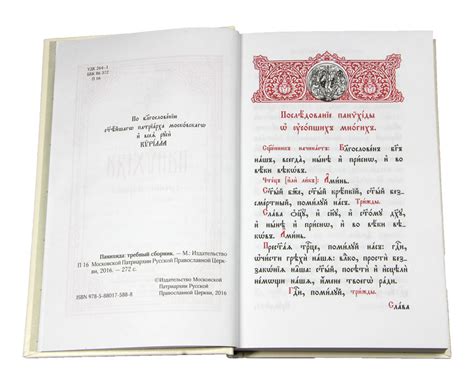 УДК 264-1
ББК 86.372
П 16
По бл҃гословенїю
ст҃ѣйшагѡ патрїарха московскагѡ
и всеѧ̀ рꙋсѝ
КѴРІЛЛА
Панихида: требный сборник. — М.: Издательство
П 16 Московской Патриархии Русской Православной Церк-
ви, 2016. — 272 с.
©Издательство Московской
Патриархии Русской
Православной Церкви, 2016
ISBN 978-5-88017-588-8
Послѣ́дованїе панѷхі́ды
ѡ҆ ᲂу҆со́пшихъ мно́гихъ.
Сщ҃е́нникъ начина́етъ: Бл҃гослове́нъ бг҃ъ
на́шъ, всегда̀, ны́нѣ и҆ при́снѡ, и҆ во
вѣ́ки вѣкѡ́въ.
Чте́цъ (и҆лѝ ли́къ): А҆ми́нь.
Ст҃ы́й бж҃е, ст҃ы́й крѣ́пкїй, ст҃ы́й без-
сме́ртный, поми́лꙋй на́съ. Три́жды.
Сла́ва ѻ҆ц҃ꙋ̀, и҆ сн҃ꙋ, и҆ ст҃о́мꙋ дх҃ꙋ,
и҆ ны́нѣ и҆ при́снѡ, и҆ во вѣ́ки вѣ-
кѡ́въ. А҆ми́нь.
Прест҃а́ѧ трⷪ҇це, поми́лꙋй на́съ: гдⷭ҇и, ѡ҆-
чи́сти грѣхѝ на́шѧ: влⷣко, простѝ без-
закѡ́нїѧ на́шѧ: ст҃ы́й, посѣтѝ и҆ и҆сцѣлѝ
не́мѡщи на́шѧ, и҆́мене твоегѡ̀ ра́ди.
Гдⷭ҇и, поми́лꙋй, три́жды.
Сла́ва